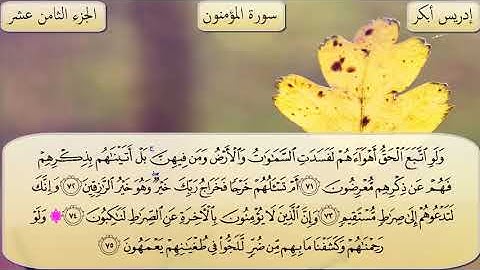 إدريس أبكر
سورة المؤمنون
الجزء الثامن عشر
وَلَوِ ٱتَّبَعَ ٱلْحَقُّ أَهْوَآءَهُمْ لَفَسَدَتِ ٱلسَّمَـٰوَٰتُ وَٱلْأَرْضُ وَمَن فِيهِنَّ ۚ بَلْ أَتَيْنَـٰهُم بِذِكْرِهِمْ
فَهُمْ عَن ذِكْرِهِم مُّعْرِضُونَ ٧١ أَمْ تَسْـَٔلُهُمْ خَرْجًا فَخَرَاجُ رَبِّكَ خَيْرٌ ۖ وَهُوَ خَيْرُ ٱلرَّٰزِقِينَ ٧٢ وَإِنَّكَ
لَتَدْعُوهُمْ إِلَىٰ صِرَٰطٍ مُّسْتَقِيمٍ ٧٣ وَإِنَّ ٱلَّذِينَ لَا يُؤْمِنُونَ بِٱلْـَٔاخِرَةِ عَنِ ٱلصِّرَٰطِ لَنَـٰكِبُونَ ٧٤ ۞ وَلَوْ
رَحِمْنَـٰهُمْ وَكَشَفْنَا مَا بِهِم مِّن ضُرٍّ لَّلَجُّوا۟ فِى طُغْيَـٰنِهِمْ يَعْمَهُونَ ٧٥